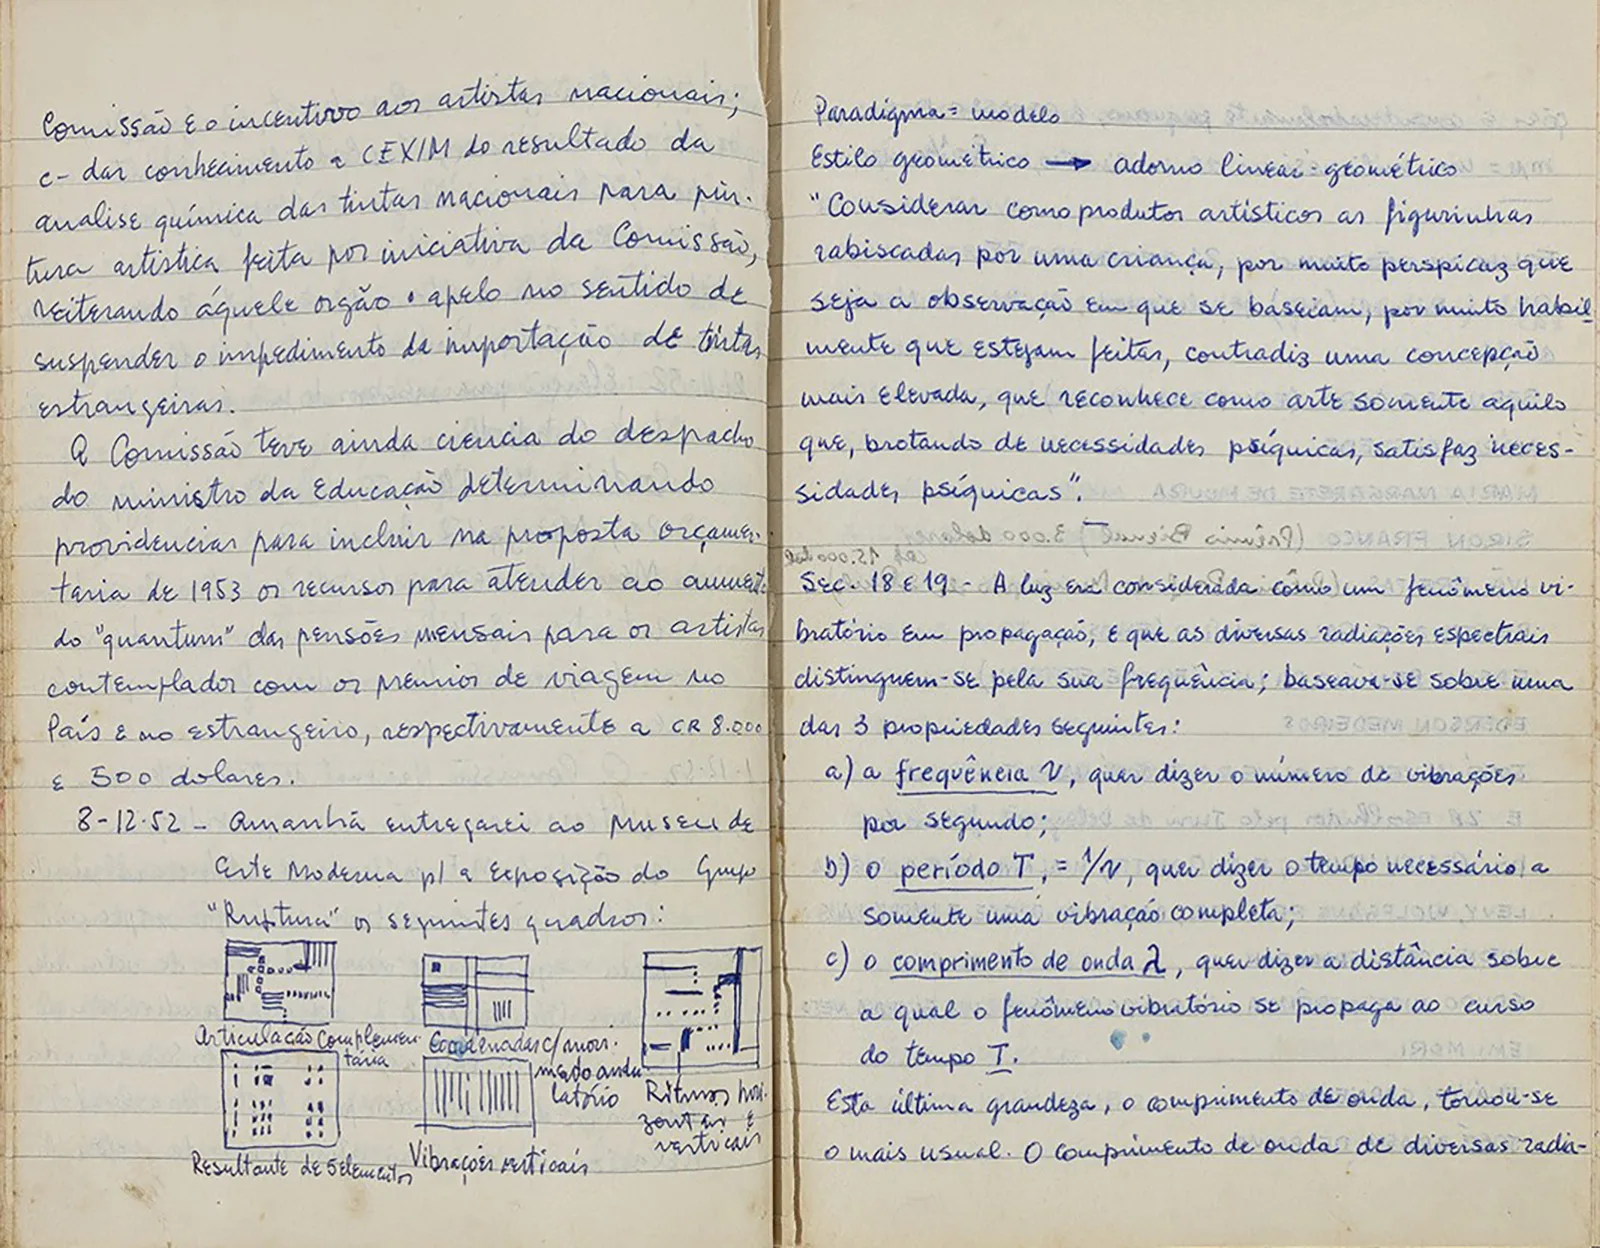 Comissão e o incentivo aos artistas nacionais;
c- dar conhecimento a CEXIM do resultado da
analise química das tintas nacionais para pin-
tura artistica feita por iniciativa da Comissão,
reiterando áquele orgão o apelo no sentido de
suspender o impedimento da importação de tintas
estrangeiras.
A Comissão teve ainda ciencia do despacho
do ministro da Educação determinando
providencias para incluir na proposta orçamen-
taria de 1953 os recursos para atender ao aumento
do "quantum" das pensões mensais para os artistas
contemplados com os premios de viagem no
País e no estrangeiro, respectivamente a CR 8.000
e 500 dolares.
8-12-52 - Amanhã entregarei ao Museu de
Arte Moderna p/ a Exposição do Grupo
"Ruptura" os seguintes quadros:
Articulação complemen-
taria
Coordenadas c/ movi-
mento ondu
latório
Ritmos hori-
zontais e
verticais
Resultante de 5 elementos
Vibrações verticais
Paradigma = modelo
Estilo geométrico → adorno linear-geométrico
"Considerar como produtos artísticos as figurinhas
rabiscadas por uma criança, por muito perspicaz que
seja a observação em que se baseiam, por muito habil
mente que estejam feitas, contradiz uma concepção
mais elevada, que reconhece como arte somente aquilo
que, brotando de necessidades psíquicas, satisfaz neces-
sidades psíquicas".
Sec. 18 e 19 - A luz era considerada cômo um fenômeno vi-
bratório em propagação, e que as diversas radiações espectrais
distinguem-se pela sua frequência; baseava-se sobre uma
das 3 propriedades seguintes:
a) a frequência ν, quer dizer o número de vibrações
por segundo;
b) o período T, = 1/ν, quer dizer o tempo necessário a
somente uma vibração completa;
c) o comprimento de onda λ, quer dizer a distância sobre
a qual o fenômeno vibratório se propaga ao curso
do tempo T.
Esta última grandeza, o comprimento de onda, tornou-se
o mais usual. O comprimento de onda de diversas radia-